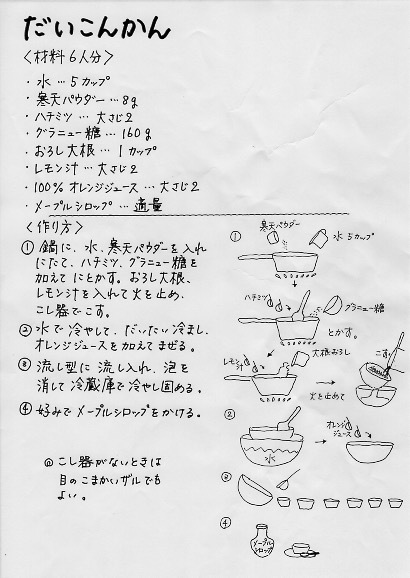 だいこんかん
〈材料6人分〉
・水…5カップ
・寒天パウダー…8g
・ハチミツ…大さじ2
・グラニュー糖…160g
・おろし大根…1カップ
・レモン汁…大さじ2
・100%オレンジジュース…大さじ2
・メープルシロップ…適量
〈作り方〉
①鍋に、水、寒天パウダーを入れ
にたて、ハチミツ、グラニュー糖を
加えてにとかす。おろし大根、
レモン汁を入れて火を止め、
こし器でこす。
②水で冷やして、だいたい冷まし、
オレンジジュースを加えてまぜる。
③流し型に流し入れ、泡を
消して冷蔵庫で冷やし固める。
④好みでメープルシロップをかける。
◎こし器がないときは
目のこまかいザルでも
よい。
①
寒天パウダー
水5カップ
ハチミツ
グラニュー糖
とかす。
レモン汁
大根おろし
こす。
火を止めて
②
水
オレンジ
ジュース
③
④
メープル
シロップ